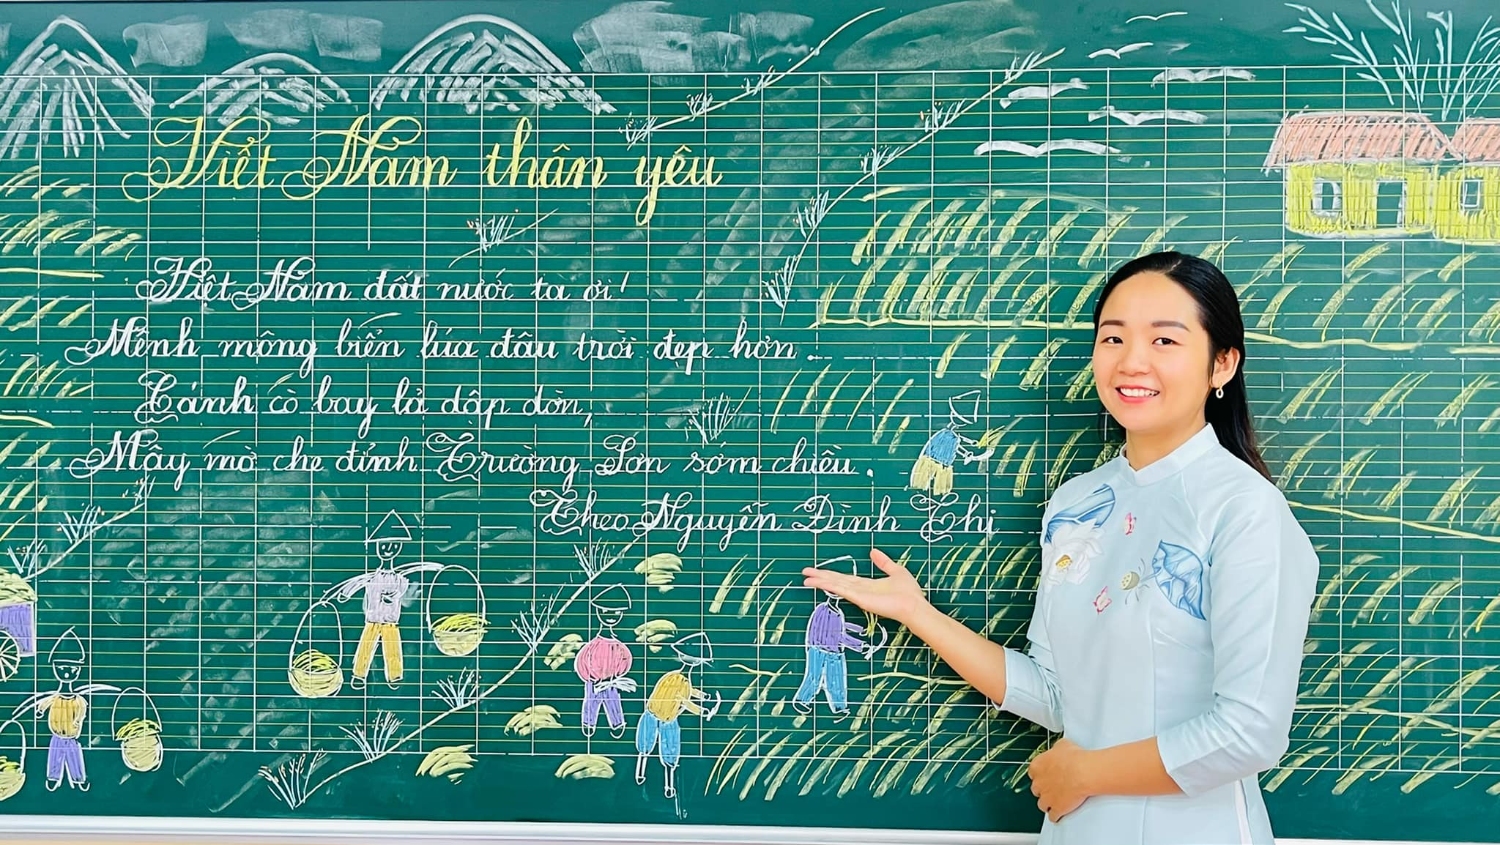 Việt Nam thân yêu
Việt Nam đất nước ta ơi!
Mênh mông biển lúa đâu trời đẹp hơn.
Cánh cò bay lả dập dờn,
Mây mờ che đỉnh Trường Sơn sớm chiều.
Theo Nguyễn Đình Thi